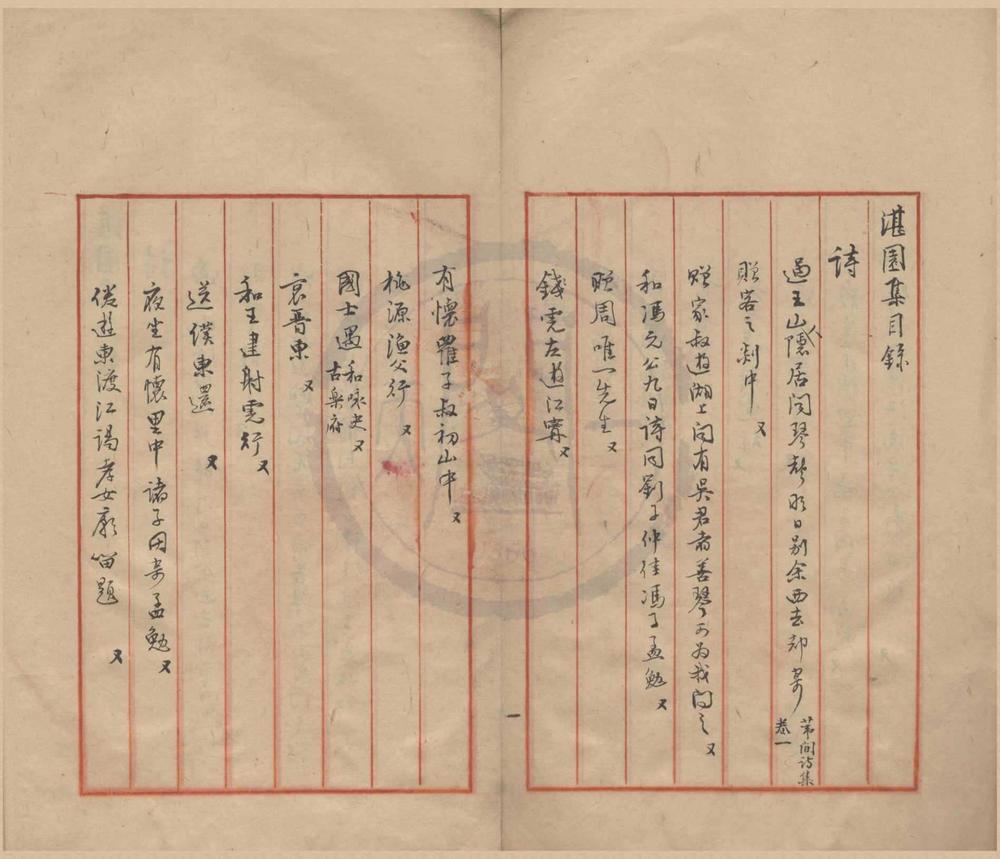 湛園集目錄
詩
過王山人隱居聞琴歌明日別余西去却寄 葦間詩集卷一
贈客之剡中 又
贈家叔遊湖上聞有吳君者善琴可為我問之 又
和馮元公九日詩同劉子仲佳馮子孟勉 又
贈周唯一先生 又
錢虎左遊江寧 又
一
有懷羅子叔初山中 又
桃源漁父行 又
國士遇 和咏史古樂府 又
哀晉東 又
和王建射虎行 又
送僕東還 又
夜坐有懷里中諸子因寄孟勉 又
偕遊東渡江謁孝女廟留題 又